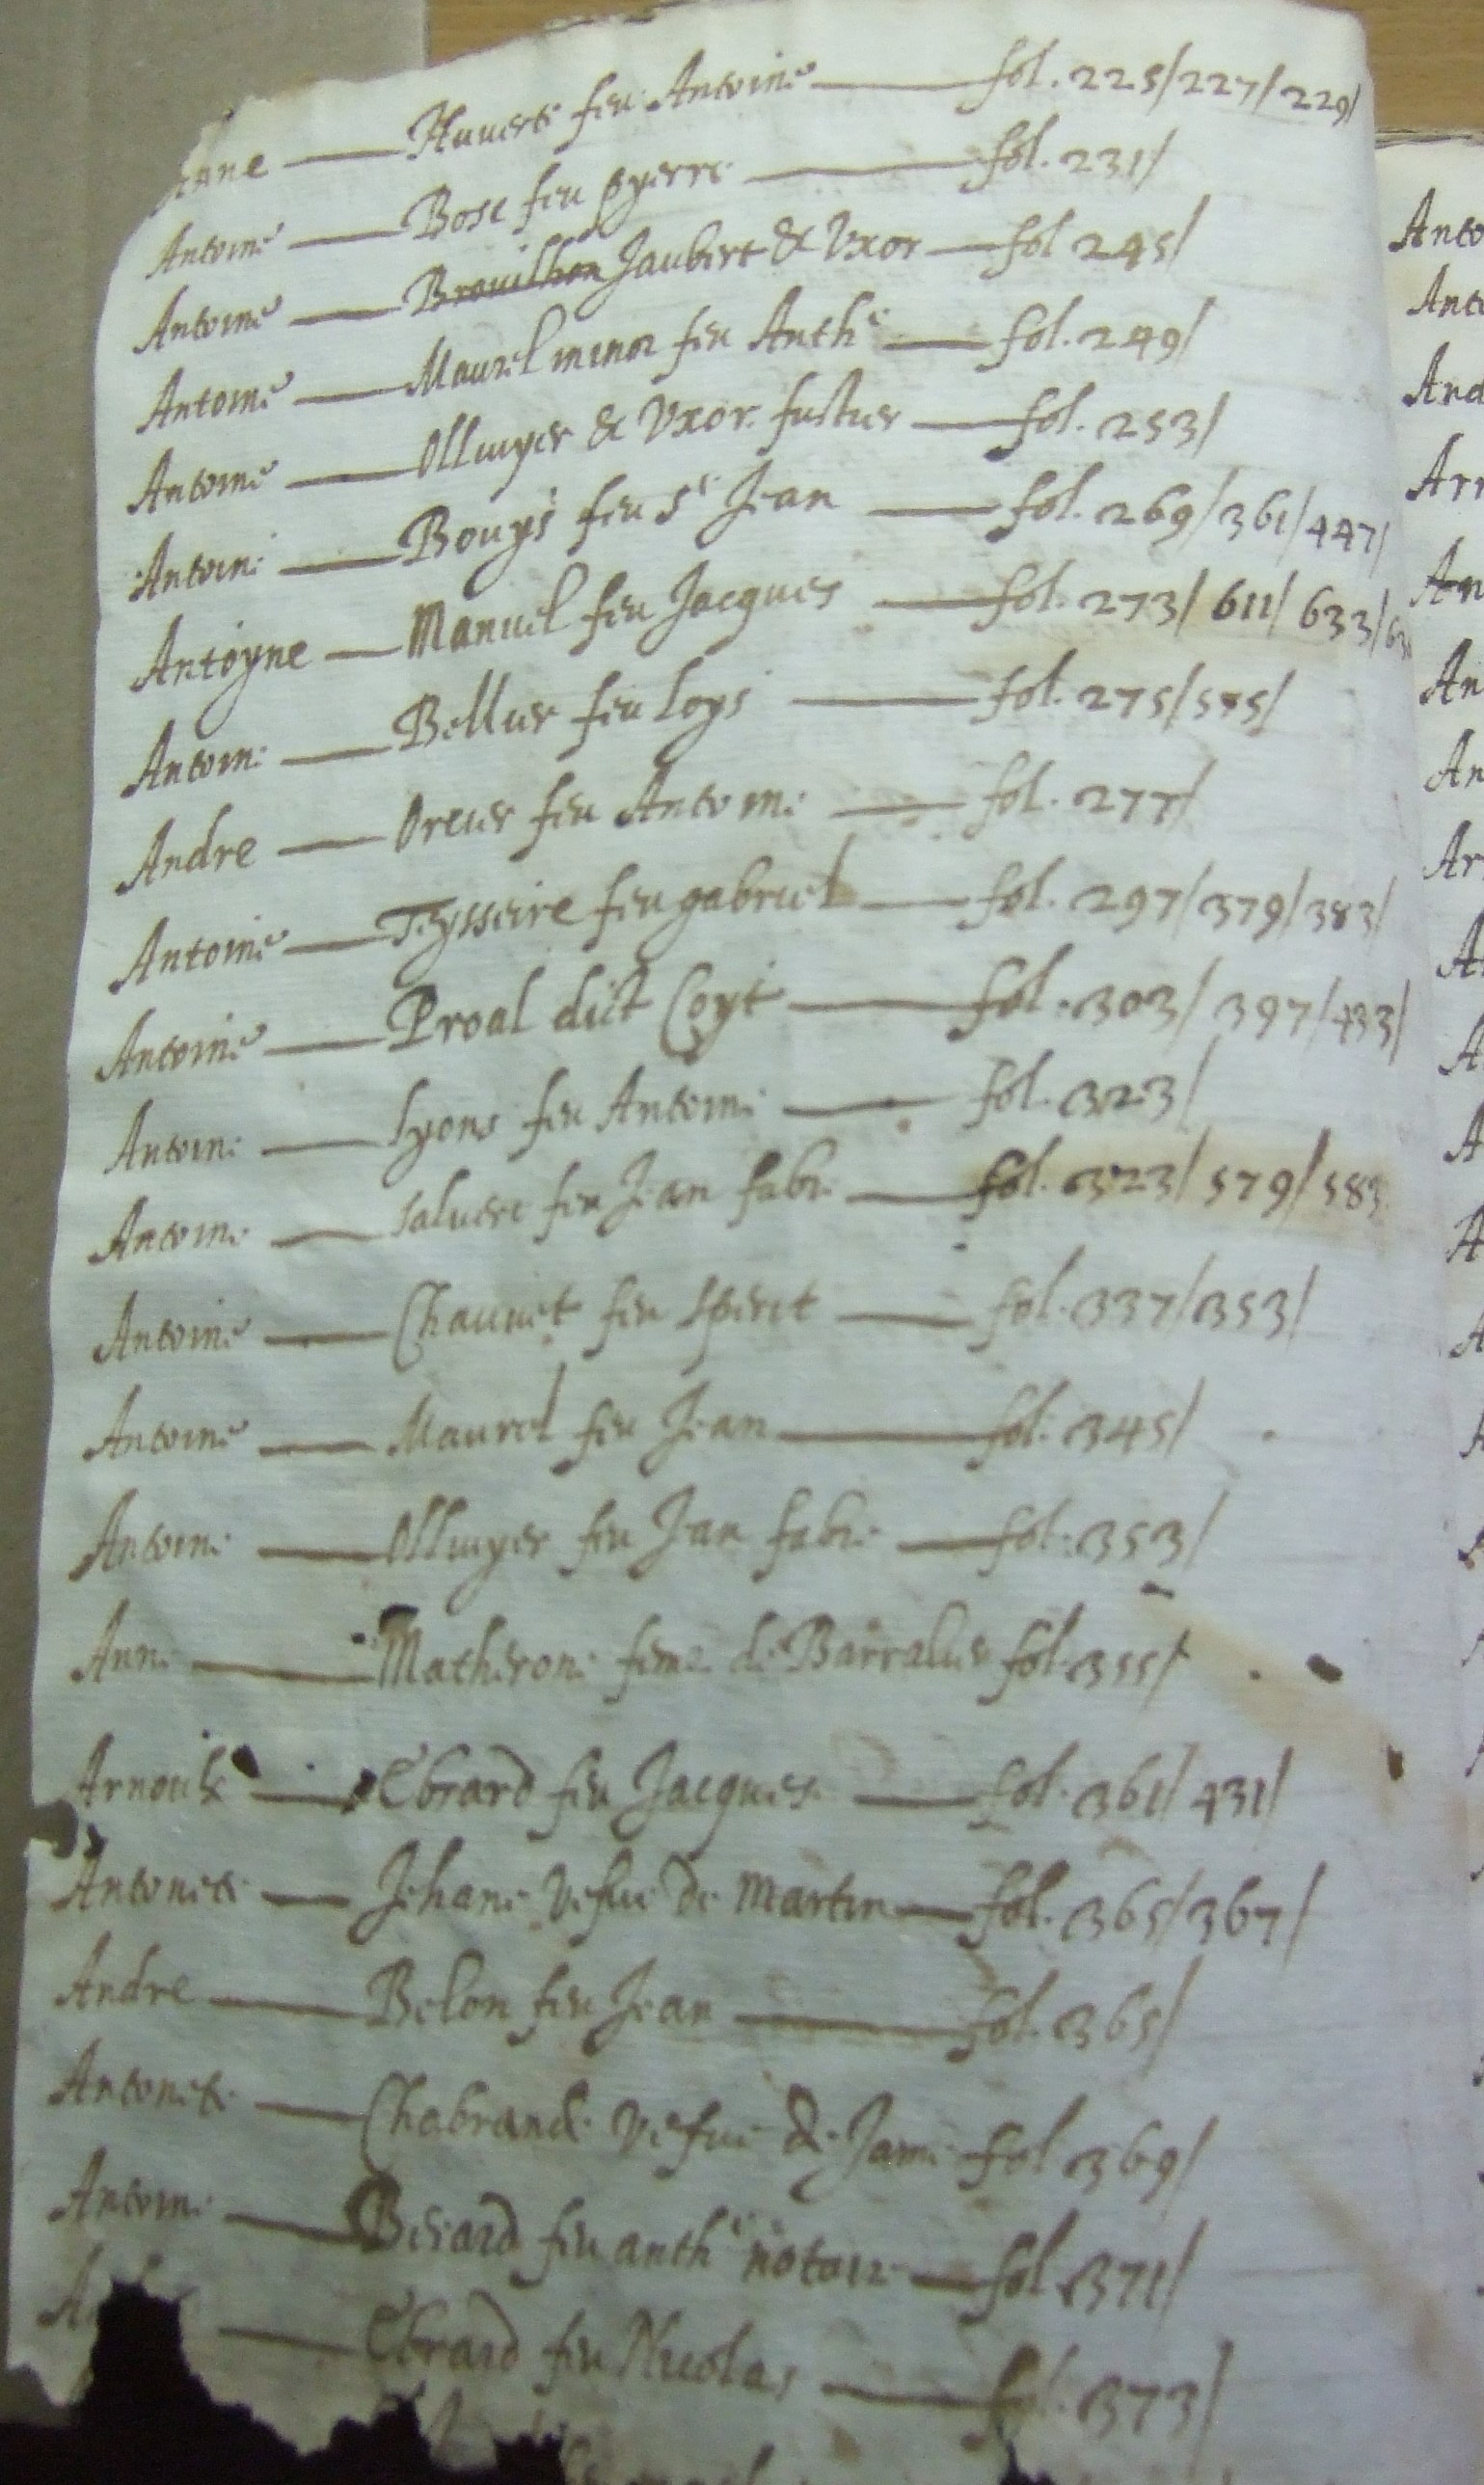 Anne — Huuerte feu Antoine — fol. 225/227/229/
Antoine — Bose feu pyerre — fol. 231/
Antoine — Brouilhon Jaubert & Uxor — fol 245/
Antoine — Maurel minor feu Anthe — fol. 249/
Antoine — Olliuyer & Uxor fustier — fol. 253/
Antoine — Bouys feu Sr Jean — fol. 269/361/447/
Antoyne — Manuel feu Jacques — fol. 273/ 611/ 633/
Antoine — Bellier feu loys — fol. 275/575/
Andre — Orcier feu Antoine — fol. 277/
Antoine — Teysseire feu gabriel — fol. 297/379/383/
Antoine — Proal dict Coyt — fol. 303/ 397/433/
Antoine — Lyons feu Antoine — fol. 323/
Antoine — Saluere feu Jean fabre — fol. 323/ 579/ 583
Antoine — Chauuet feu Sperit — fol. 337/353/
Antoine — Maurel feu Jean — fol. 345/
Antoine — Olliuyer feu Jean fabre — fol. 353/
Anne — Matherone feme de Barralier fol. 355/
Arnoulx — Ebrard feu Jacques — fol. 361/ 431/
Antonete — Jehane vefue de Martin — fol. 365/367/
Andre — Belon feu Jean — fol. 365/
Antonete — Chabrande vefue de Jame fol 369/
Antoine — Berard feu anthe notoire — fol 371/
— Ebrard feu Nicolas — fol. 373/